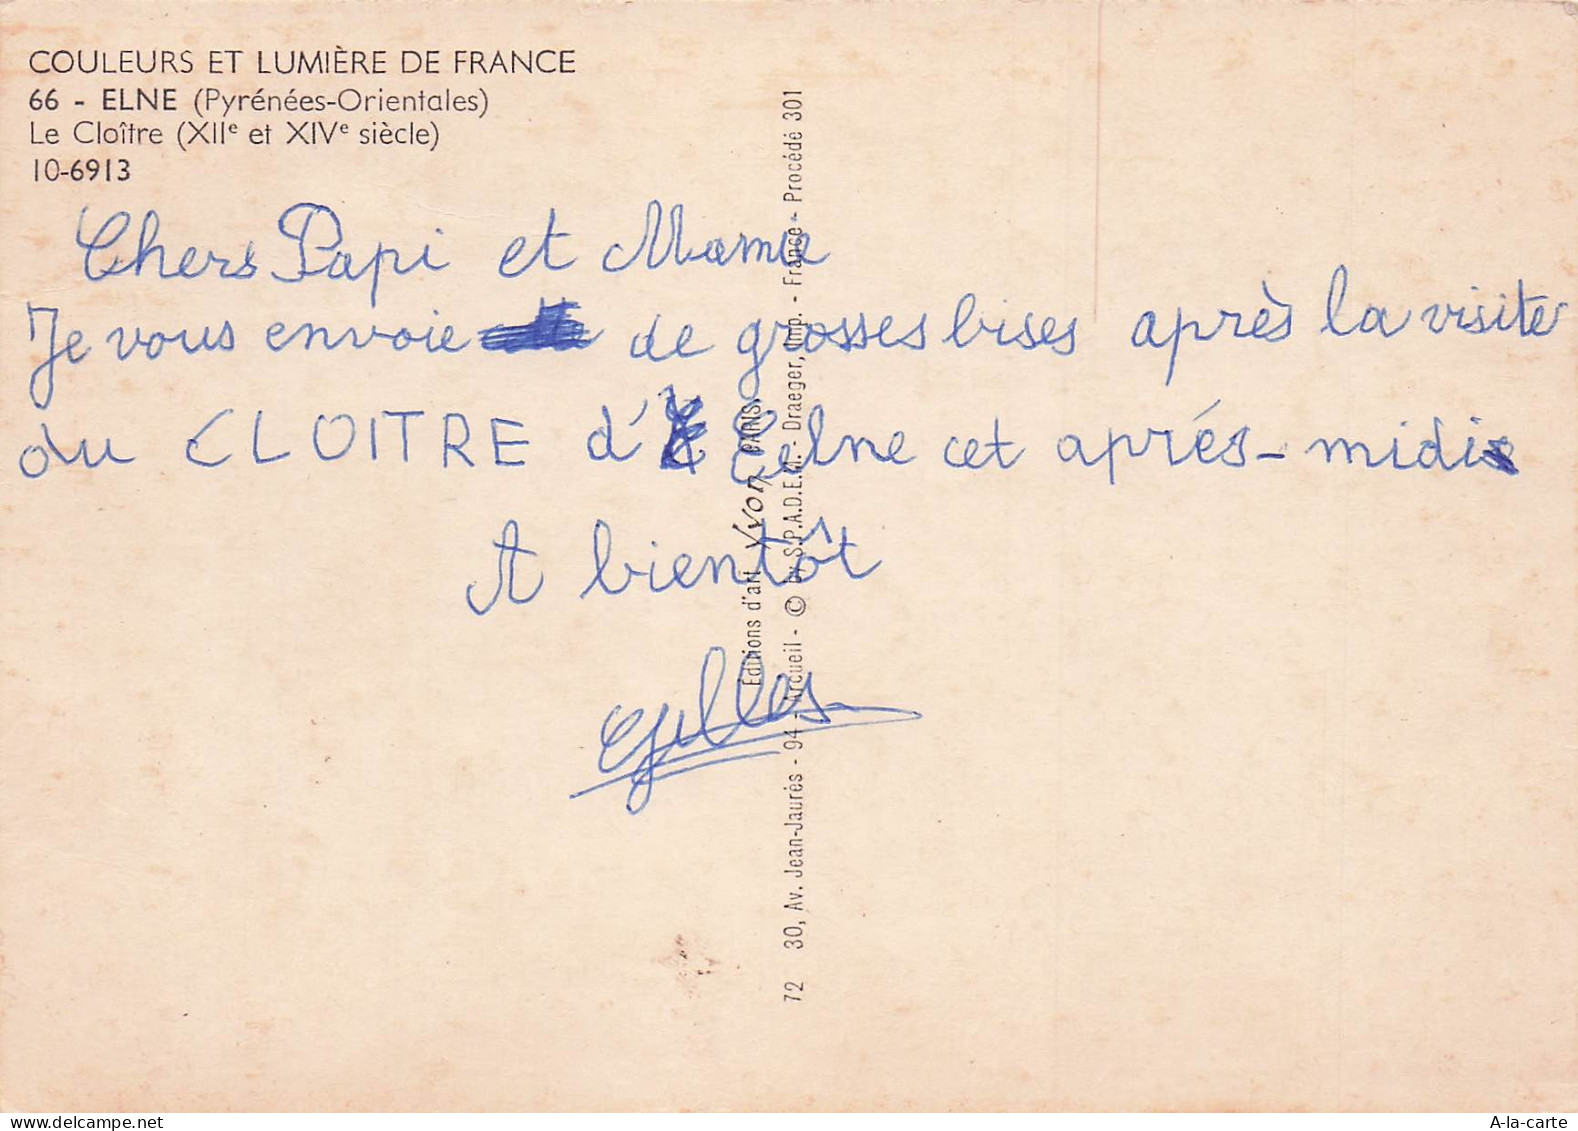 COULEURS ET LUMIÈRE DE FRANCE
66 - ELNE (Pyrénées-Orientales)
Le Cloître (XIIe et XIVe siècle)
10-6913
Chers Papi et Mamie
Je vous envoie de grosses bises après la visite
du CLOITRE d' Elne cet aprés-midi
A bientôt
Gilles
Editions d'art Yvon, PARIS.
72 30, Av. Jean-Jaurès - 94 - Arcueil - © by S.P.A.D.E.M. - Draeger, Imp. - France - Procédé 301
A-la-carte